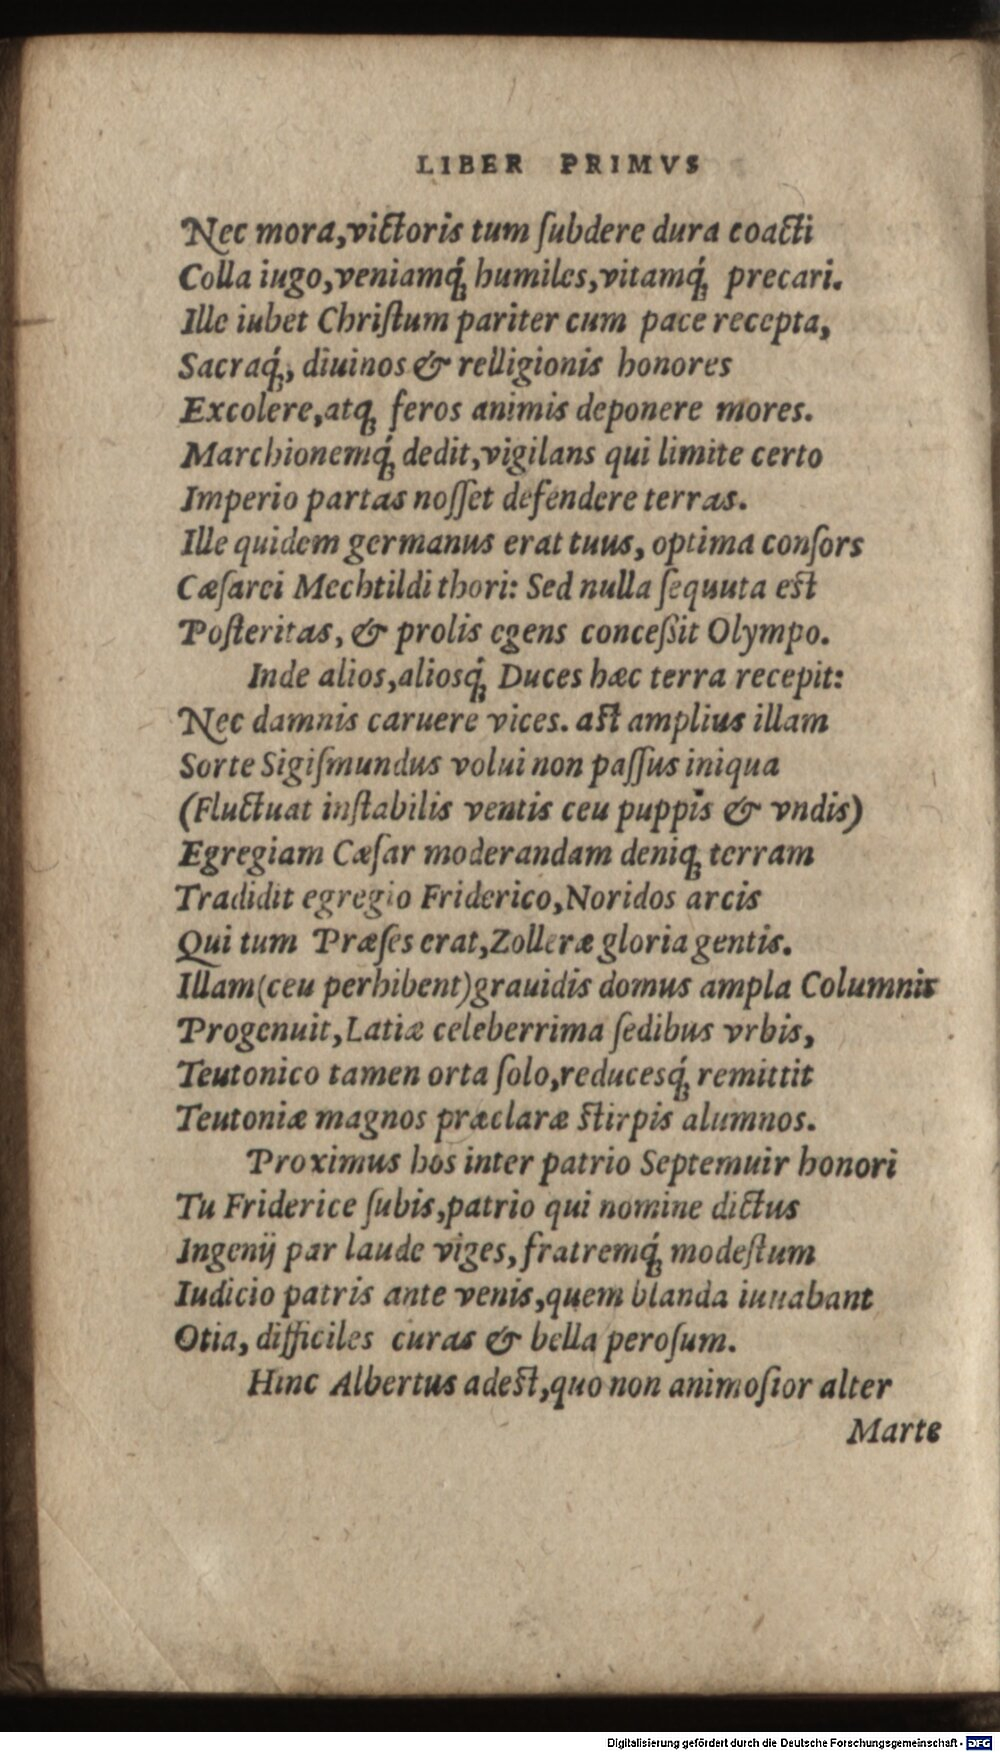 LIBER PRIMVS
Nec mora, victoris tum ſubdere dura coacti
Colla iugo, veniamq́; humiles, vitamq́; precari.
Ille iubet Chriſtum pariter cum pace recepta,
Sacraq́;, diuinos & relligionis honores
Excolere, atq; feros animis deponere mores.
Marchionemq́; dedit, vigilans qui limite certo
Imperio partas noſſet defendere terras.
Ille quidem germanus erat tuus, optima conſors
Cæſarei Mechtildi thori: Sed nulla ſequuta est
Poſteritas, & prolis egens conceßit Olympo.
Inde alios, aliosq́; Duces hæc terra recepit:
Nec damnis caruere vices. ast amplius illam
Sorte Sigiſmundus volui non paſſus iniqua
(Fluctuat inſtabilis ventis ceu puppis & vndis)
Egregiam Cæſar moderandam deniq; terram
Tradidit egregio Friderico, Noridos arcis
Qui tum Præſes erat, Zolleræ gloria gentis.
Illam (ceu perhibent) grauidis domus ampla Columnis
Progenuit, Latiæ celeberrima ſedibus vrbis,
Teutonico tamen orta ſolo, reducesq́; remittit
Teutoniæ magnos præclaræ stirpis alumnos.
Proximus hos inter patrio Septemuir honori
Tu Friderice ſubis, patrio qui nomine dictus
Ingenij par laude viges, fratremq́; modeſtum
Iudicio patris ante venis, quem blanda iuuabant
Otia, difficiles curas & bella peroſum.
Hinc Albertus adest, quo non animoſior alter
Marte
Digitalisierung gefördert durch die Deutsche Forschungsgemeinschaft - DFG